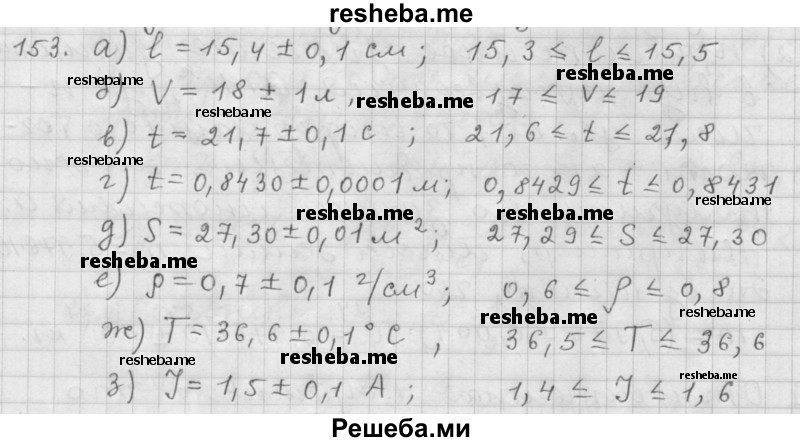 resheba.me
153. а) l = 15,4 ± 0,1 см; 15,3 ≤ l ≤ 15,5
resheba.me resheba.me
б) V = 18 ± 1 л, 17 ≤ V ≤ 19
resheba.me resheba.me
в) t = 21,7 ± 0,1 с ; 21,6 ≤ t ≤ 21,8
resheba.me
г) t = 0,8430 ± 0,0001 м; 0,8429 ≤ t ≤ 0,8431
resheba.me resheba.me resheba.me
д) S = 27,30 ± 0,01 м²; 27,29 ≤ S ≤ 27,30
resheba.me
е) ρ = 0,7 ± 0,1 г/см³; 0,6 ≤ ρ ≤ 0,8
resheba.me resheba.me
ж) T = 36,6 ± 0,1° C , 36,5 ≤ T ≤ 36,6
resheba.me resheba.me resheba.me
з) J = 1,5 ± 0,1 A ; 1,4 ≤ J ≤ 1,6
Решеба.ми